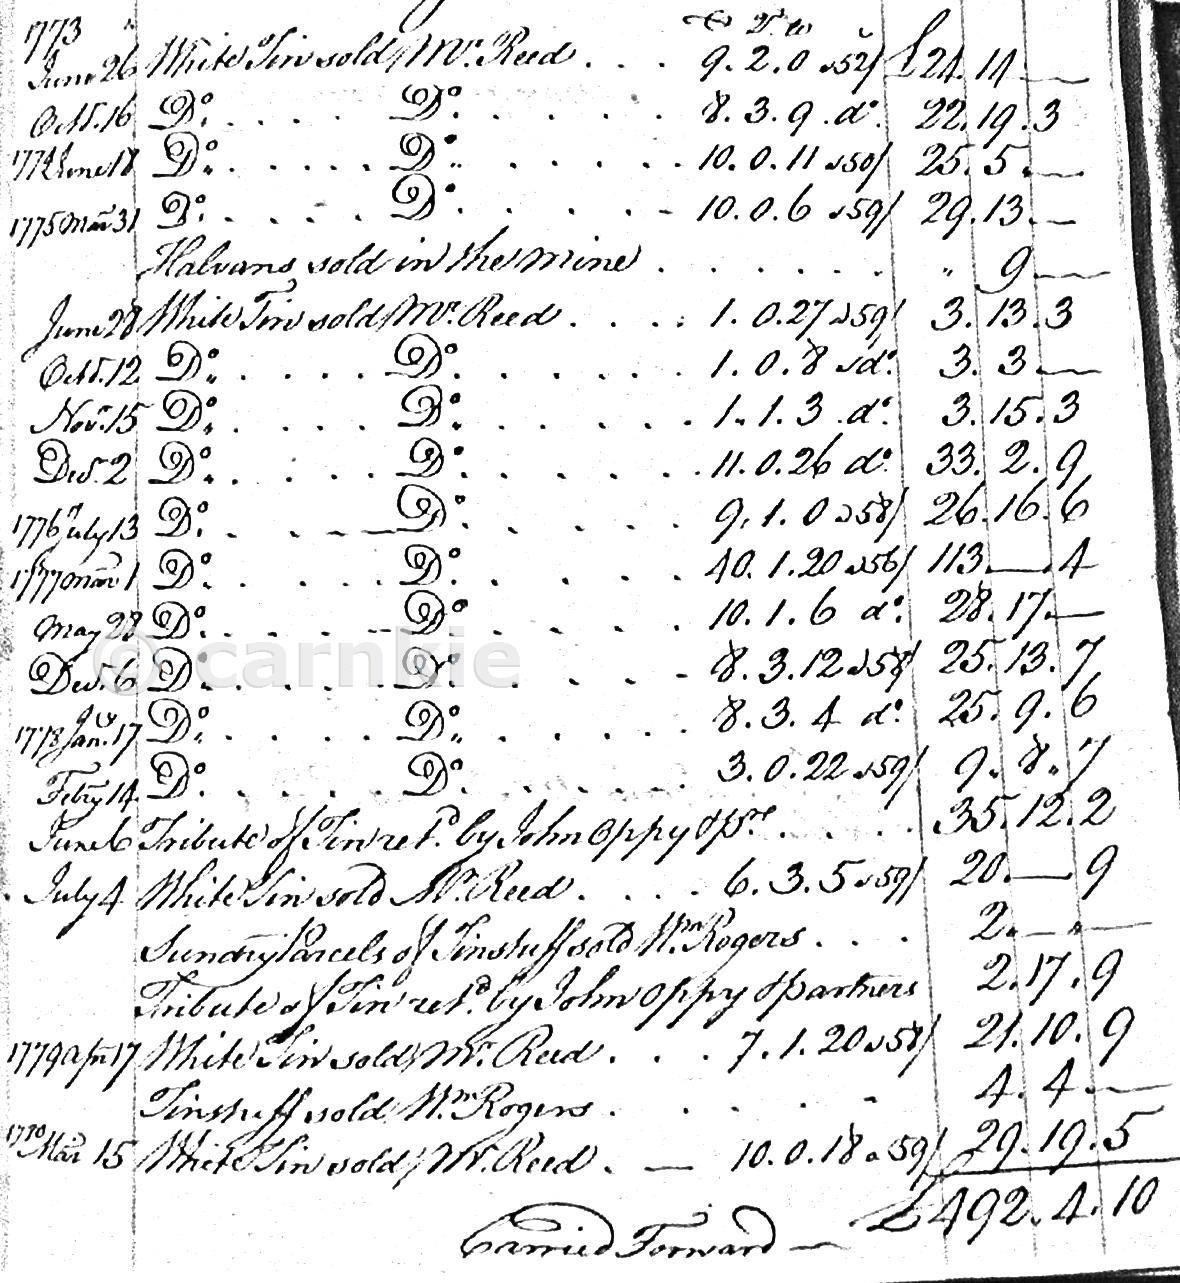 1773 C Qr lb
June 26 White Tin sold Mr. Reed . . . 9. 2. 0 a 52/ £24. 14 —
Octr. 16 Do. . . . . Do. . . . . . 8. 3. 9 . do. 22. 19. 3
1774 June 18 Do. . . . . Do. . . . . . 10. 0. 11 a 50/ 25. 5. —
1775 Mar 31 Do. . . . . Do. . . . . - 10. 0. 6 a 59/ 29. 13. —
Halvans sold in the mine . . . . . . " 9 —
June 28 White Tin sold Mr. Reed . . . . 1. 0. 27 a 59/ 3. 13. 3
Octr. 12 Do. . . . . Do. . . . . . 1. 0. 8 a do. 3. 3. —
Novr. 15 Do. . . . . Do. . . . . . 1. 1. 3 . do. 3. 15. 3
Decr. 2 Do. . . . . Do. . . . . . 11. 0. 26 do. 33. 2. 9
1776 July 13 Do. . . . — Do. . . . . . 9. 1. 0 a 58/ 26. 16. 6
1777 Mar 1 Do. . . . . Do. . . . . . 40. 1. 20 a 56/ 113. — . 4
May 28 Do. . . . . Do. . . . . . 10. 1. 6 do. 28. 17. —
© carnkie
Decr. 6 Do. . . . . Do. . . . . - 8. 3. 12 a 58/ 25. 13. 7
1778 Jan. 17 Do. . . . . Do. . . . . . 8. 3. 4 do. 25. 9. 6
Febry 14. Do. . . . . Do. . . . . . 3. 0. 22 a 59/ 9. 8. 7
June 6 Tribute of Tin retd. by John Oppy & prs . . . . . 35. 12. 2
July 4 White Tin sold Mr. Reed . . . . 6. 3. 5 a 59/ 20. — 9
Sundry Parcels of Tinstuff sold Wm Rogers . . . 2. — " —
Tribute of Tin retd. by John Oppy & partners 2. 17. 9
1779 Apr 17 White Tin sold Mr. Reed . . . . 7. 1. 20 a 58/ 21. 10. 9
Tinstuff sold Wm Rogers . . . . . - 4. 4. —
1780 Mar 15 White Tin sold Mr. Reed . — 10. 0. 18 a 59/ 29. 19. 5
Carried Forward — £492. 4. 10